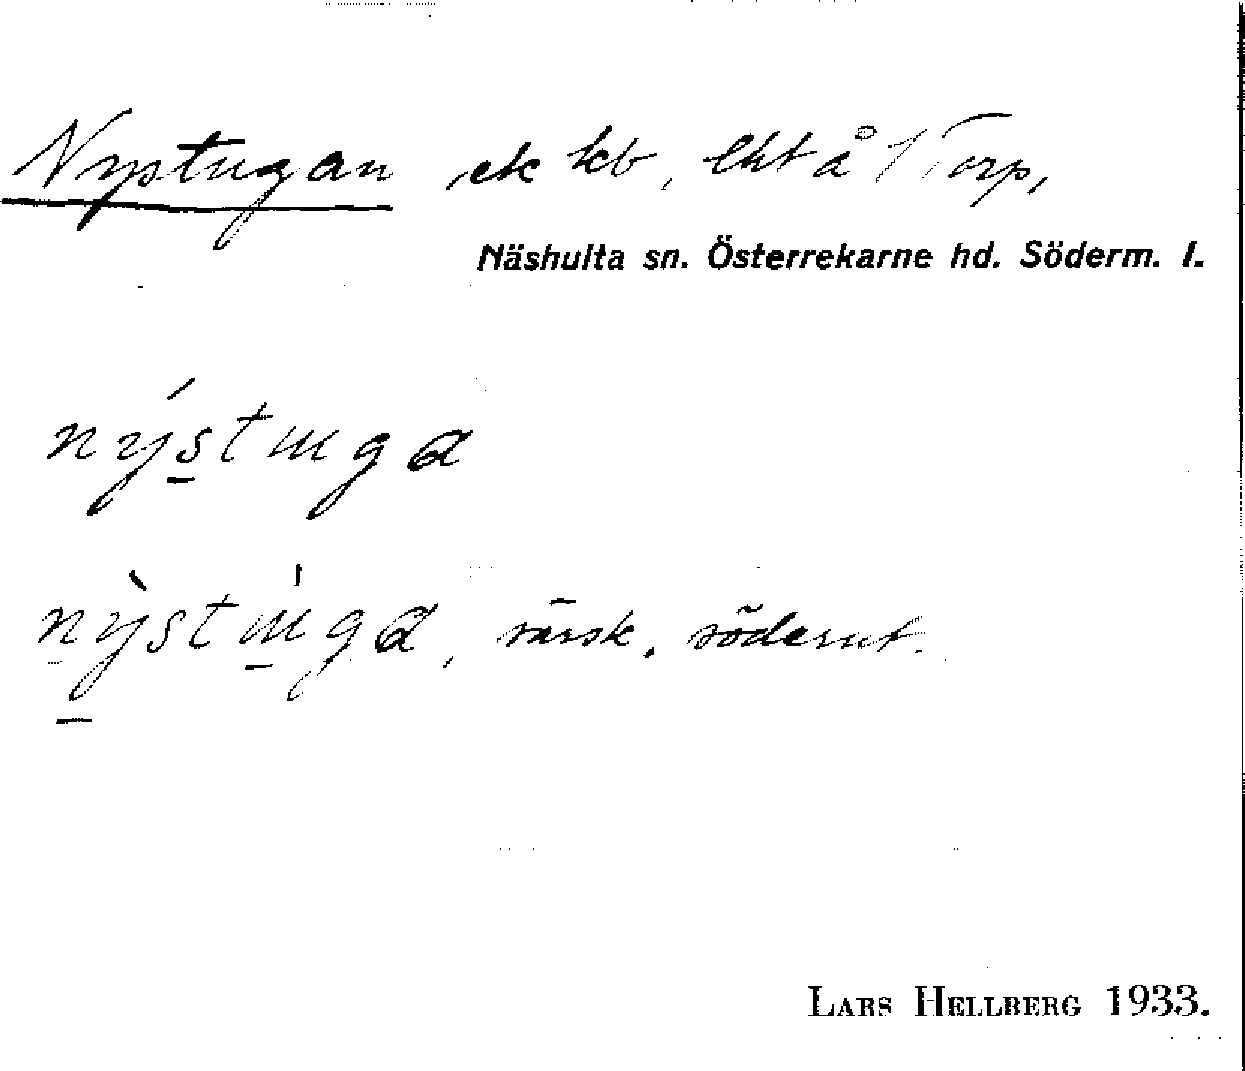 Nystugan, ek kb, lht å 1 Torp,
Näshulta sn. Österrekarne hd. Söderm. l.
nýstuga
nỳstu̍ga, särsk. södernt.
LARS HELLBERG 1933.